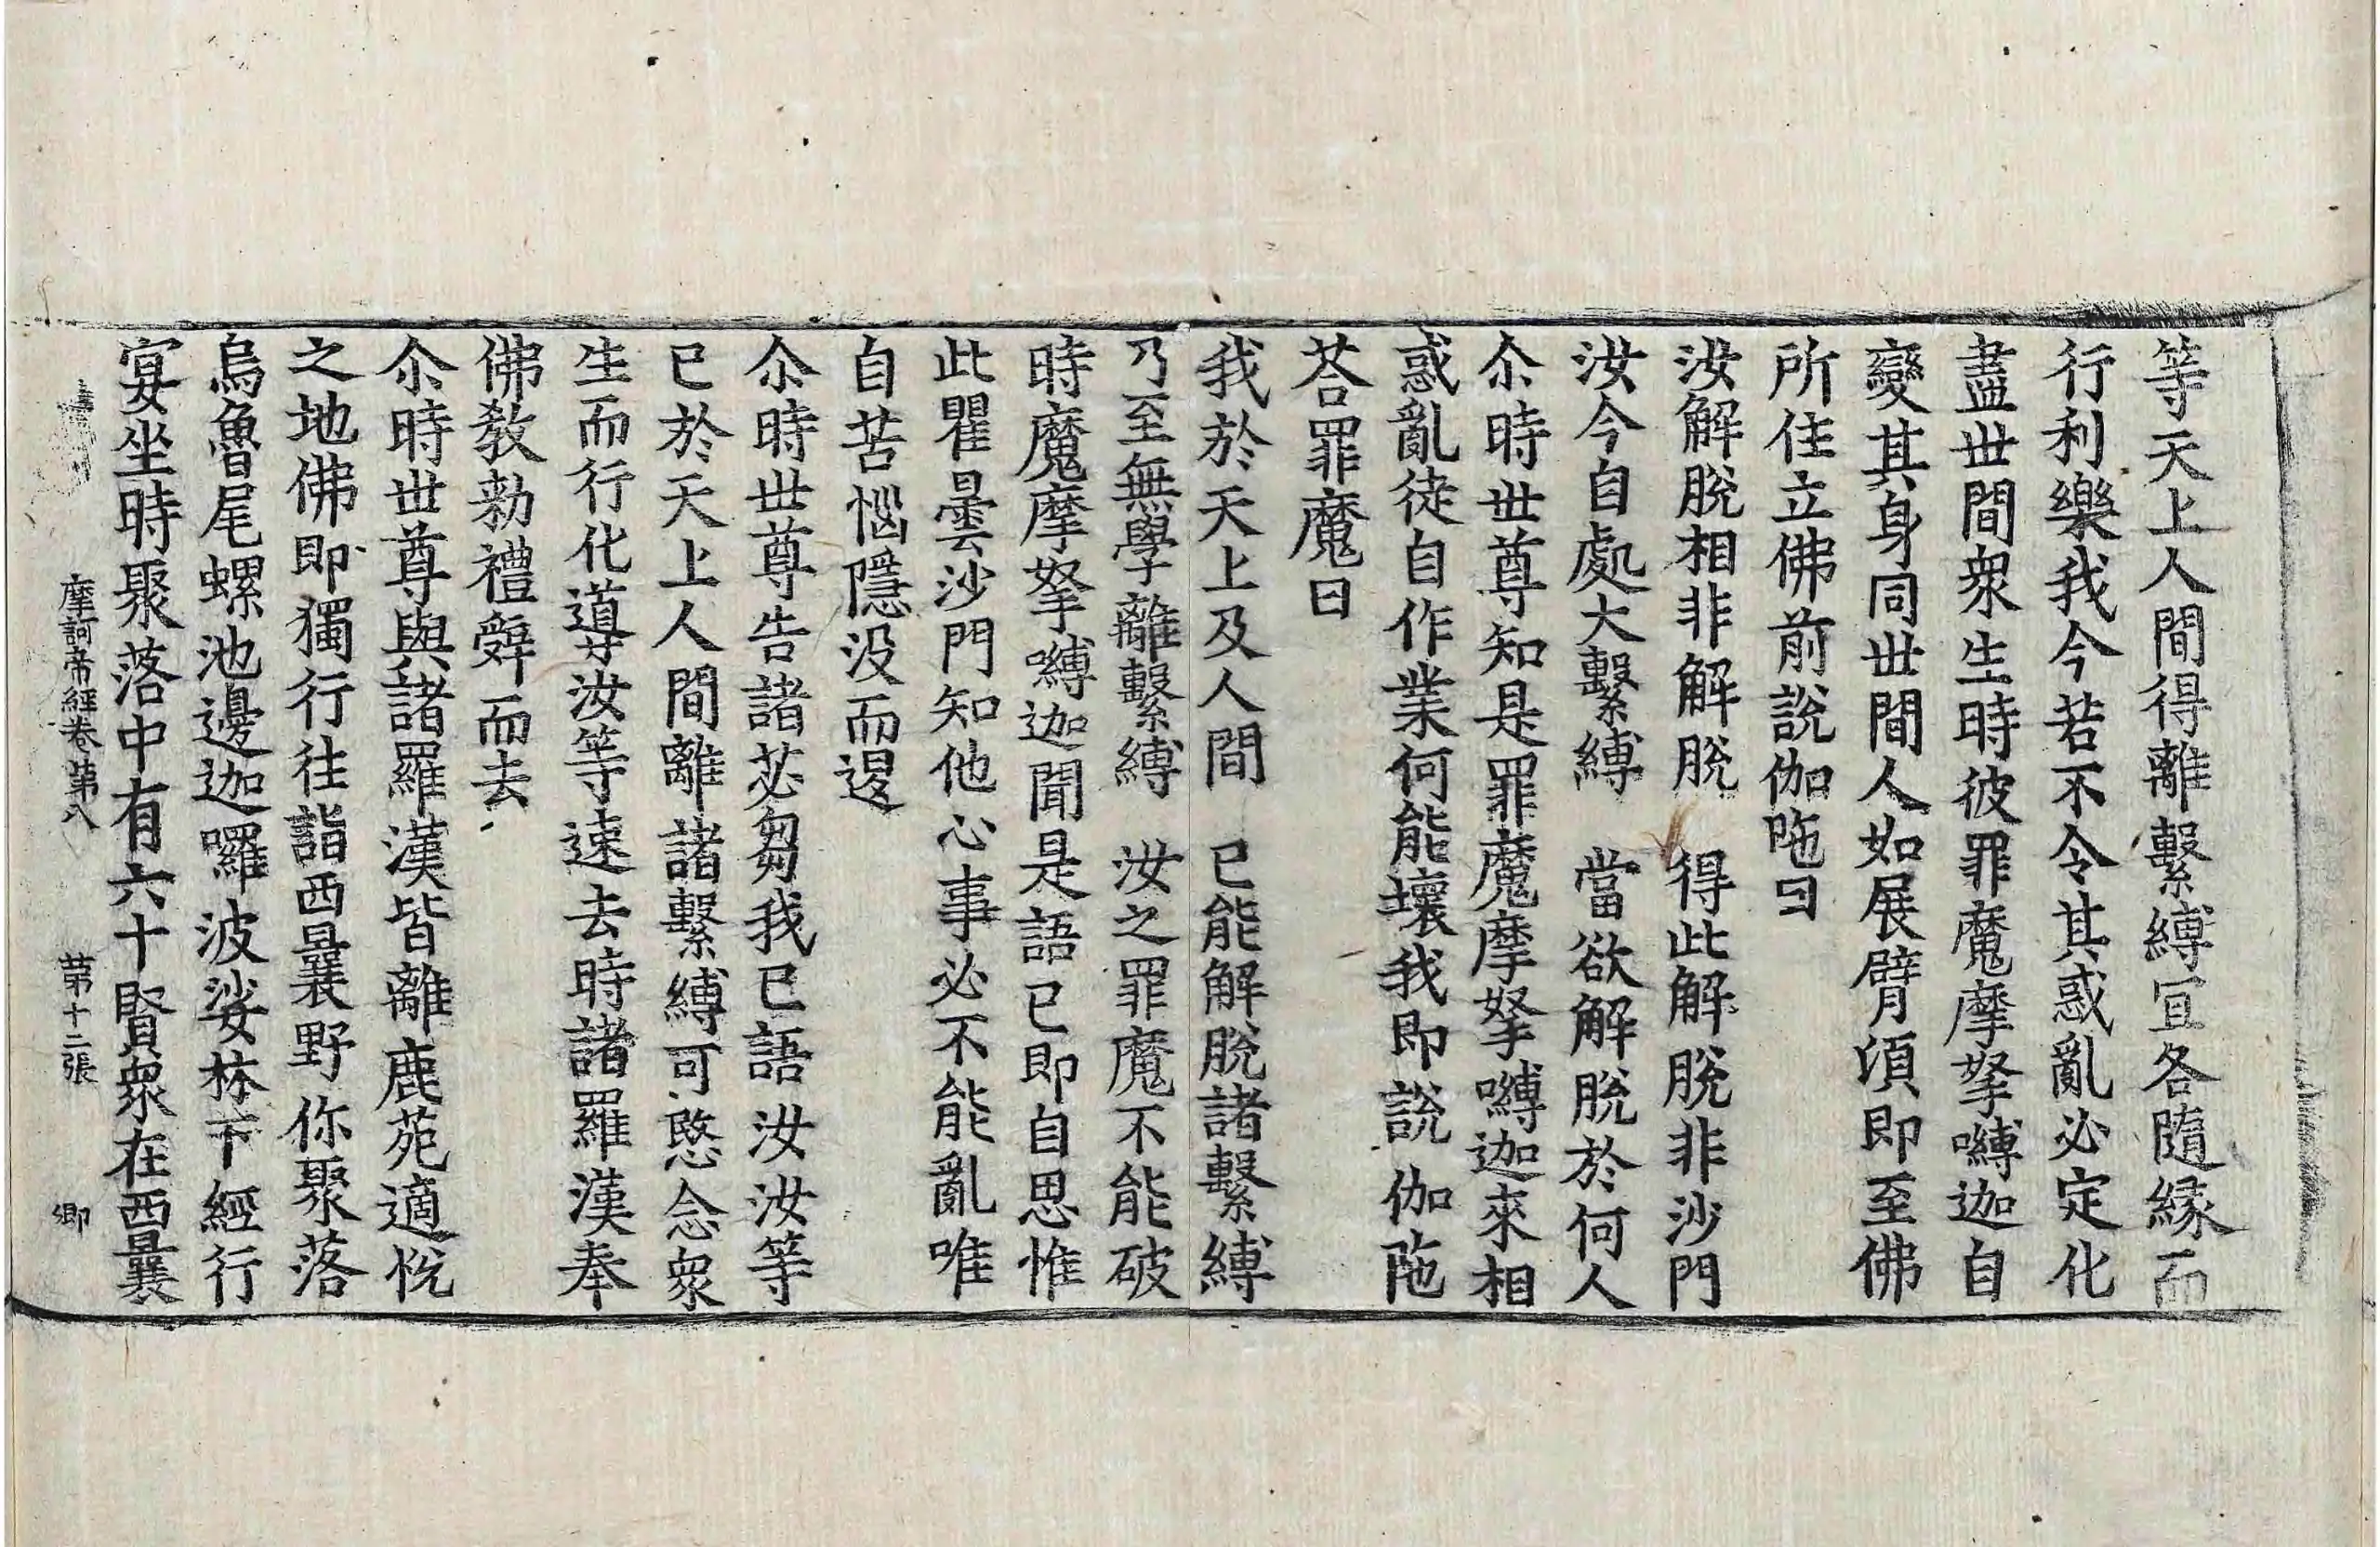 等天上人間得離繫縛宜各隨緣而
行利樂我今若不令其惑亂必定化
盡世間衆生時彼罪魔摩拏嚩迦自
變其身同世間人如展臂湏即至佛
所住立佛前說伽陁曰
汝解脫相非解脫　得此解脫非沙門
汝今自處大繫縛　當欲解脫於何人
尒時世尊知是罪魔摩拏嚩迦來相
惑亂徒自作業何能壞我即說伽陁
荅罪魔曰
我於天上及人間　已能解脫諸繫縛
乃至無學離繫縛　汝之罪魔不能破
時魔摩拏嚩迦聞是語已即自思惟
此瞿曇沙門知他心事必不能亂唯
自苦惱隱没而退
尒時世尊告諸苾芻我已語汝汝等
已於天上人間離諸繫縛可愍念衆
生而行化導汝等速去時諸羅漢奉
佛敎勑禮辤而去
尒時世尊與諸羅漢皆離鹿苑適悅
之地佛即獨行往詣西曩野你聚落
烏魯尾螺池邊迦囉波娑林下經行
宴坐時聚落中有六十賢衆在西曩
摩訶帝經卷第八　第十二張　卿